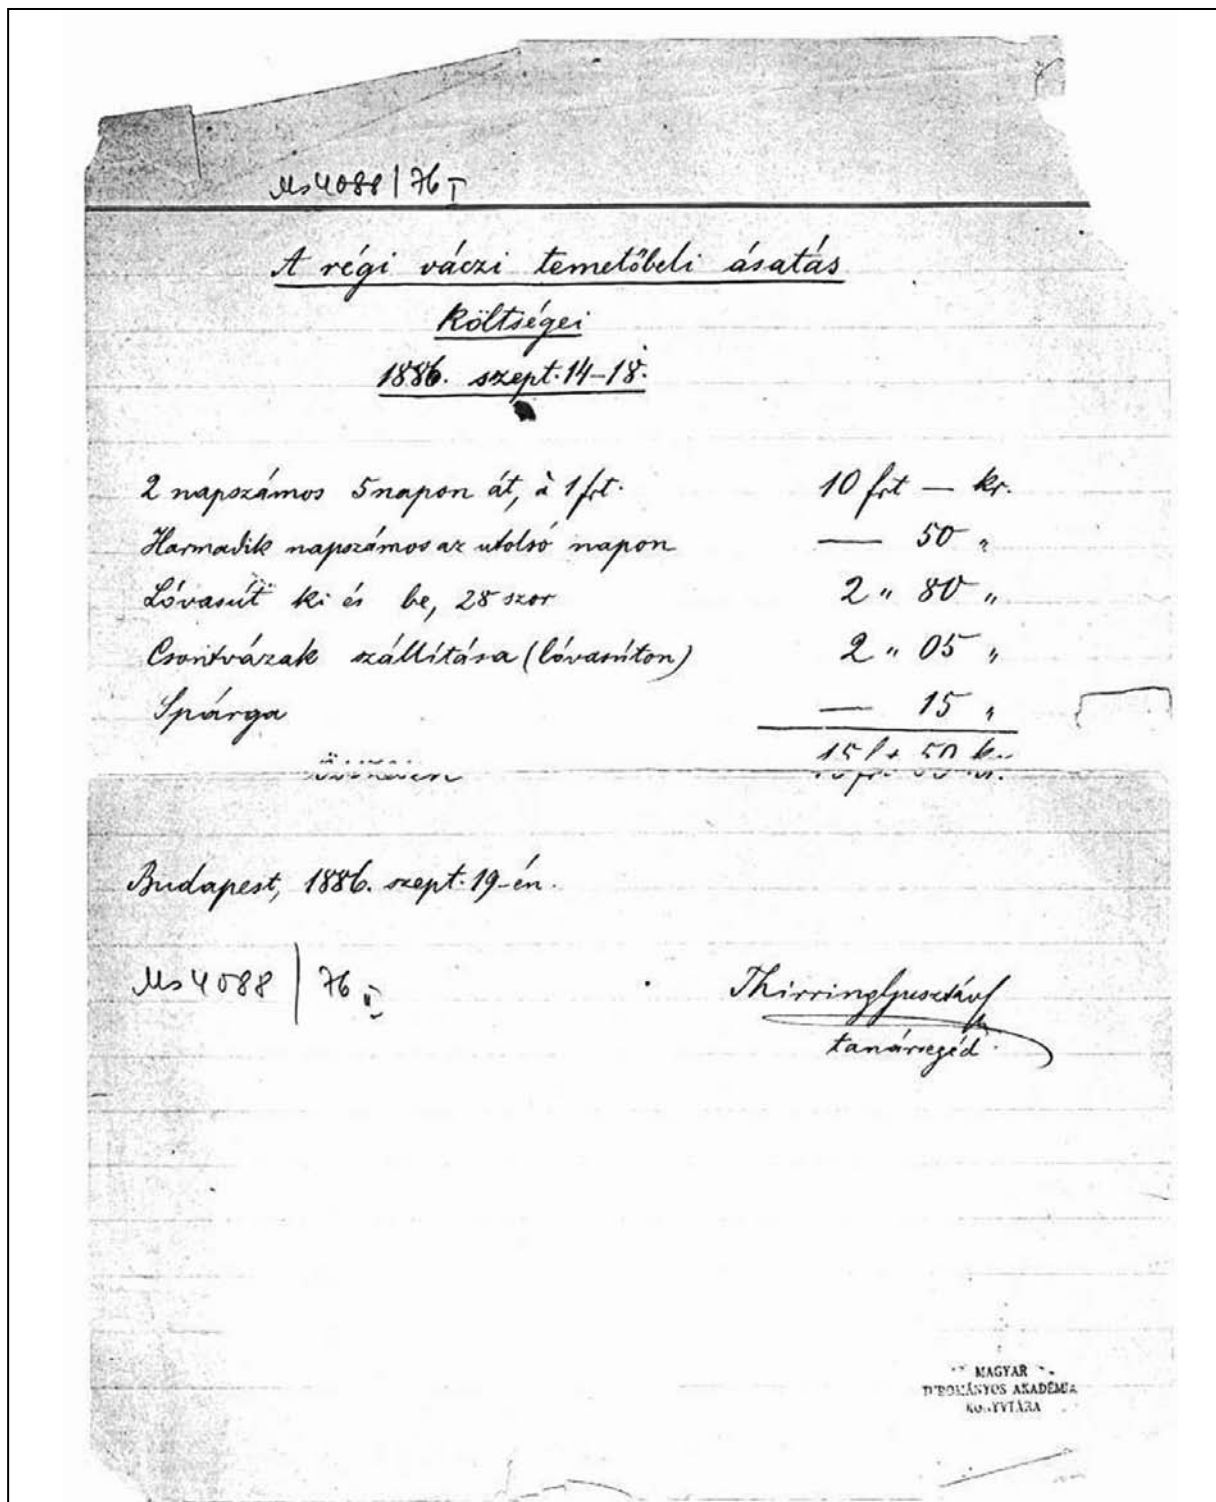 Ms 4088 | 76 I
A régi váczi temetőbeli ásatás
költségei
1886. szept. 14–18.
2 napszámos 5 napon át, à 1 frt. 10 frt — kr.
Harmadik napszámos az utolsó napon — 50 "
Lóvasút ki és be, 28 szor 2 " 80 "
Csontvázak szállítása (lóvasúton) 2 " 05 "
Spárga — 15 "
15 frt 50 kr.
Budapest, 1886. szept. 19-én.
Ms 4088 | 76
Thirring Gusztáv
tanársegéd.
MAGYAR
TUDOMÁNYOS AKADÉMIA
KÖNYVTÁRA